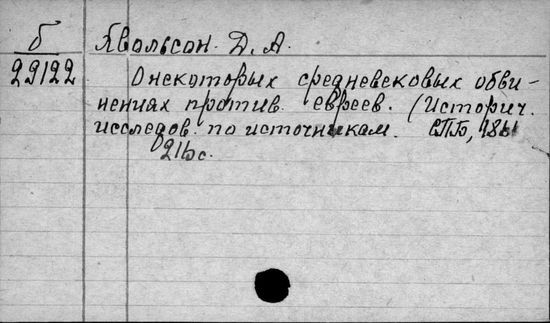 б Хвольсон. Д. А.
29122 О некоторых средневековых обви-
нениях против евреев. (Историч.
исследов. по источникам. СПБ, 1861
216 с.